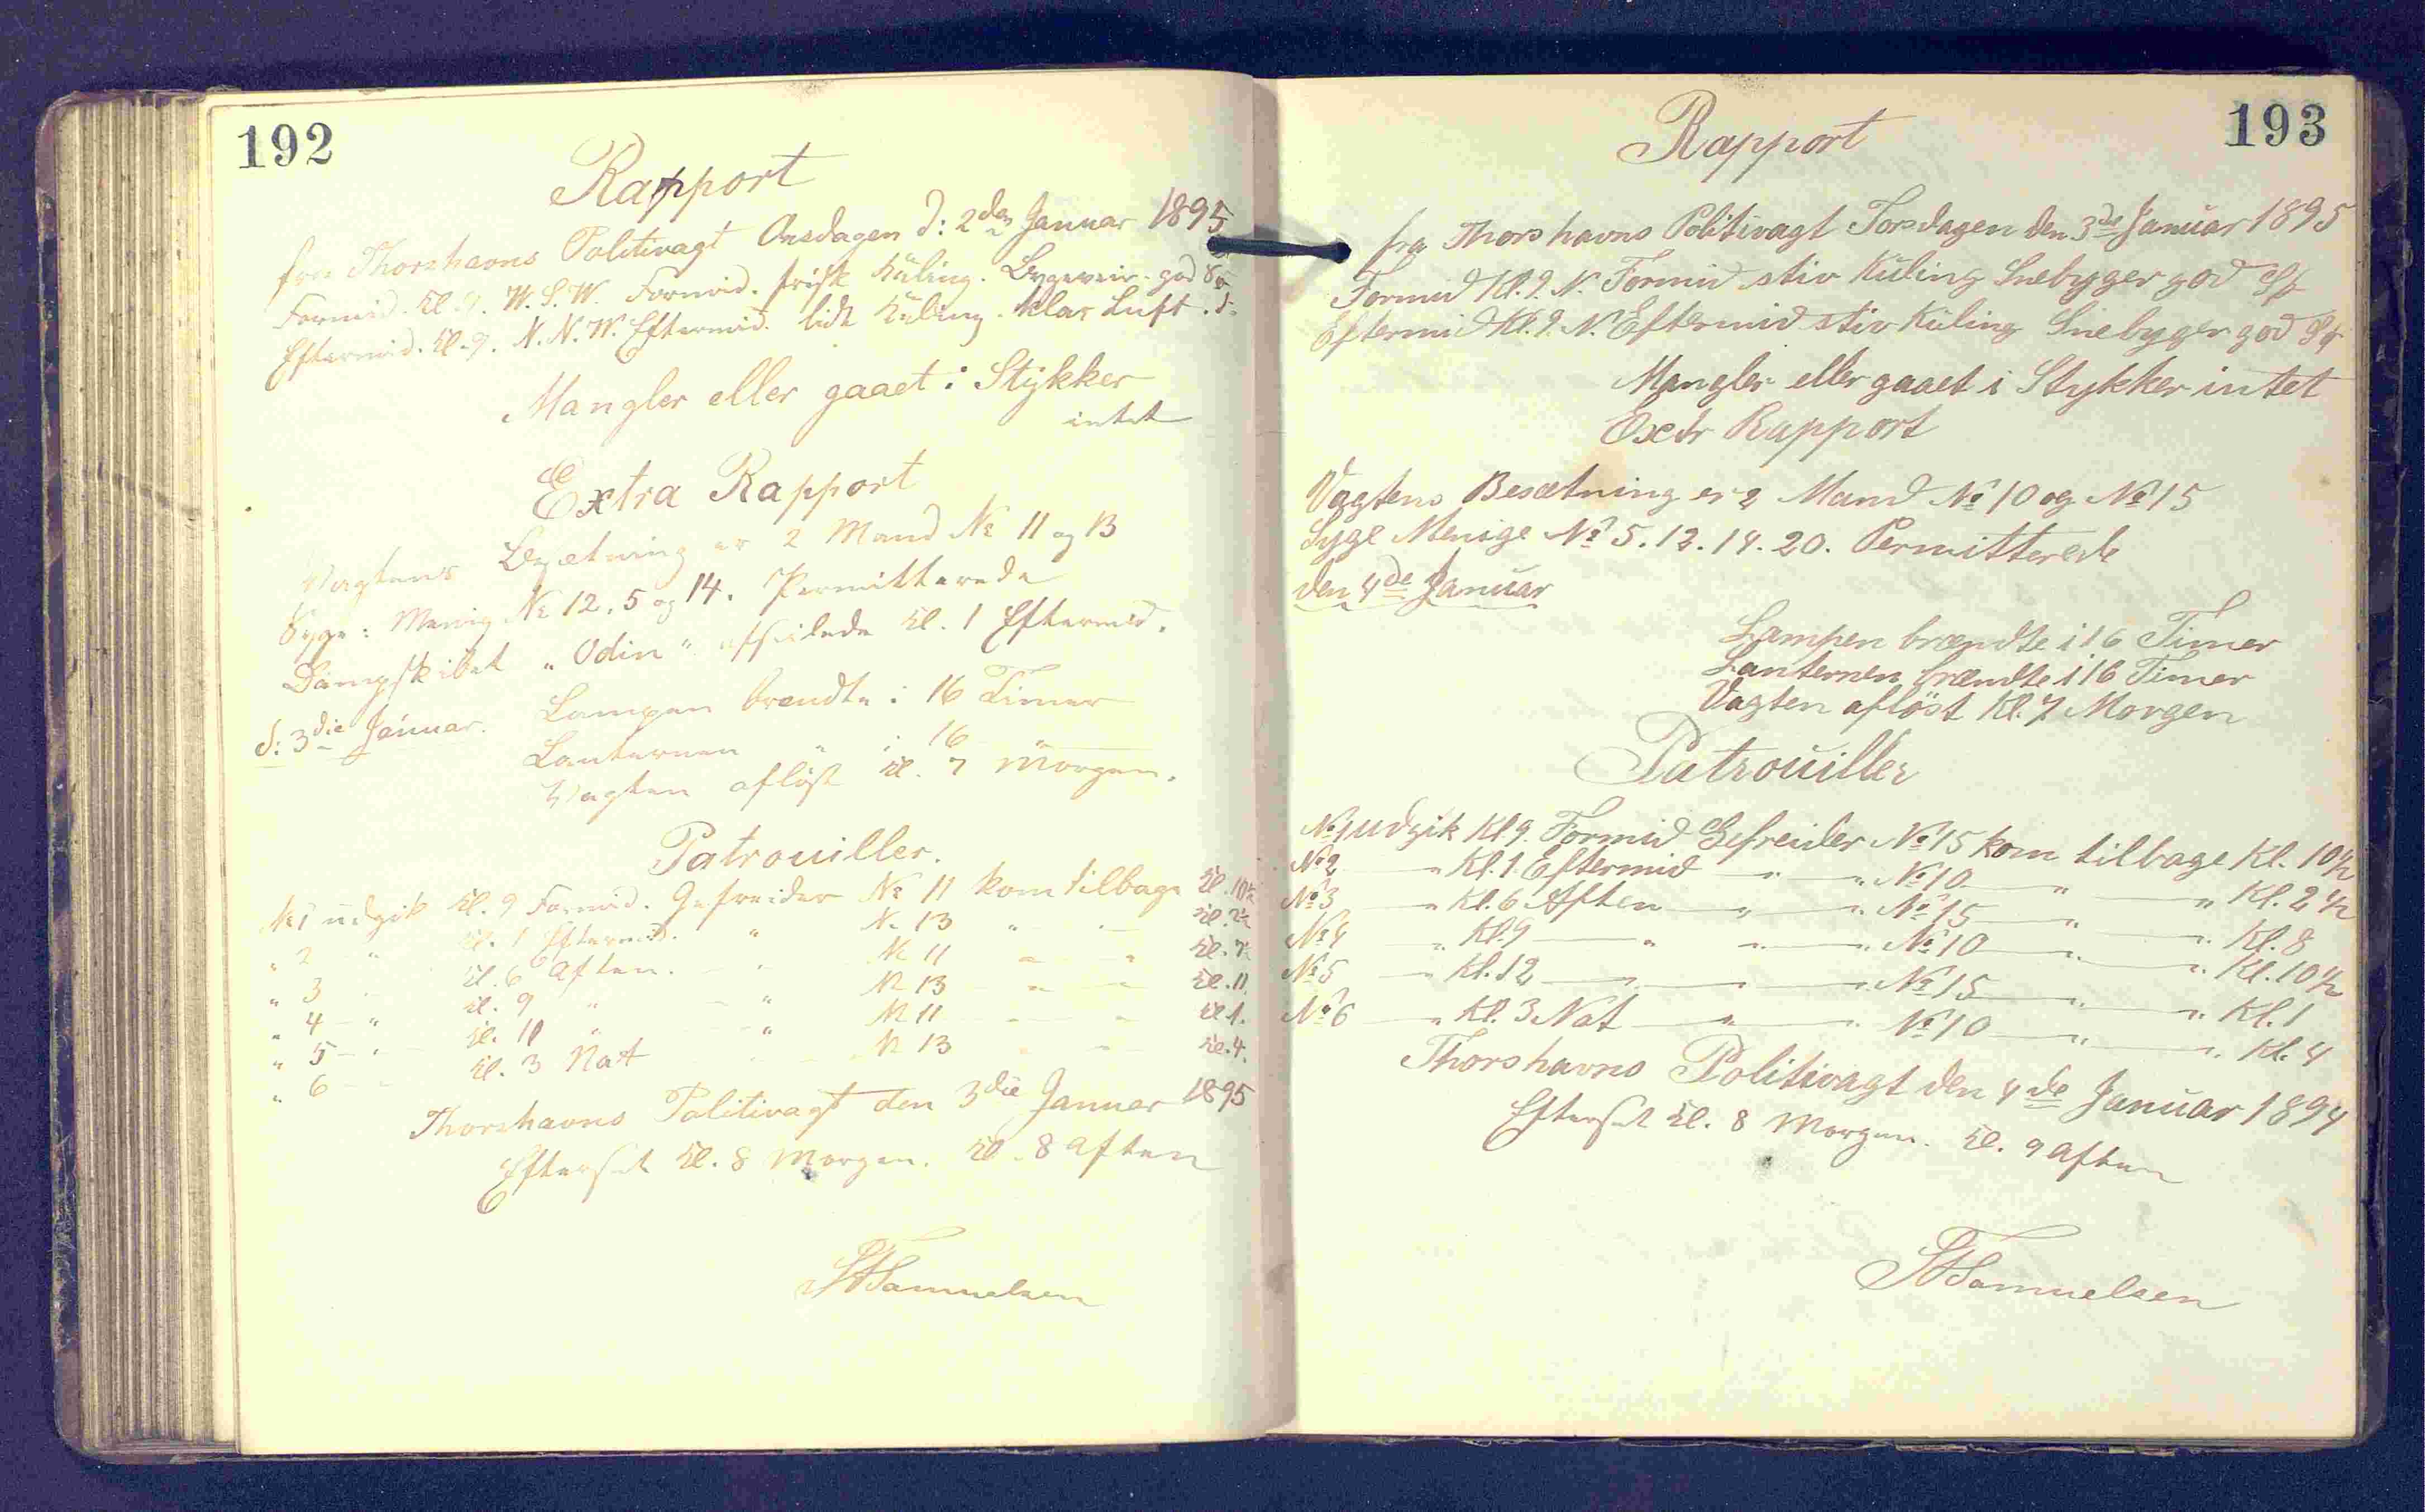 192
Rapport
fra Thorshavns Politivagt Onsdagen d: 2den Januar 1895
Formid. Kl. 9. W.S.W. Formid. frisk Küling. Bygeveir. god
Eftermid. Kl. 9. N.N.W. Eftermid. lidt Küling. klar Luft. S:
Mangler eller gaaet i Stykker
intet
Extra Rapport
Vagtens Besætning er 2 Mand No 11 og 13
Syge: Menig No 12, 5 og 14. Permitterede
Dampskibet "Odin" afseilede Kl. 1 Eftermid.
d: 3die Januar. Lampen brændte i 16 Timer
Lanternen " i 16 "
Vagten aflöst Kl. 7 Morgen.
Patrouiller.
No 1 udgik Kl. 9 Formid. Gefreider No 11 kom tilbage Kl. 10½
" 2 " Kl. 1 Eftermid. " No 13 " " Kl. 2½
" 3 " Kl. 6 Aften. " No 11 " " Kl. 7½
" 4 " Kl. 9 " " No 13 " " Kl. 11.
" 5 " Kl. 11 " " No 11 " " Kl. 1.
" 6 " Kl. 3 Nat " No 13 " " Kl. 4.
Thorshavns Politivagt den 3die Januar 1895
Efterset Kl. 8 Morgen. Kl. 8 Aften
Samuelsen
193
Rapport
fra Thorshavns Politivagt Torsdagen den 3de Januar 1895
Formid Kl. 9. N. Formid stiv Küling Snebyger god
Eftermid Kl. 9. N. Eftermid stiv Küling Snebyger god
Mangler eller gaaet i Stykker intet
Extr Rapport
Vagtens Besætning er 2 Mand No 10 og No 15
Syge Menige No 5. 12. 14. 20. Permitterede
den 4de Januar
Lampen brændte i 16 Timer
Lanternen brændte i 16 Timer
Vagten aflöst Kl. 7 Morgen
Patrouiller
No 1 udgik Kl. 9 Formid Gefreider No 15 kom tilbage Kl. 10½
No 2 " Kl. 1 Eftermid " " No 10 " " Kl. 2½
No 3 " Kl. 6 Aften " " No 15 " " Kl. 8
No 4 " Kl. 9 " " " No 10 " " Kl. 10½
No 5 " Kl. 12 " " " No 15 " " Kl. 1
No 6 " Kl. 3 Nat " " No 10 " " Kl. 4
Thorshavns Politivagt den 4de Januar 1894
Efterset Kl. 8 Morgen. Kl. 9 Aften
Samuelsen